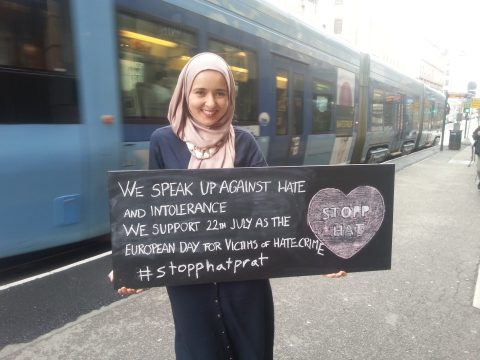 WE SPEAK UP AGAINST HATE
AND INTOLERANCE
WE SUPPORT 22TH JULY AS THE
EUROPEAN DAY FOR VICTIMS OF HATE CRIME
#stopphatprat
STOPP
HAT